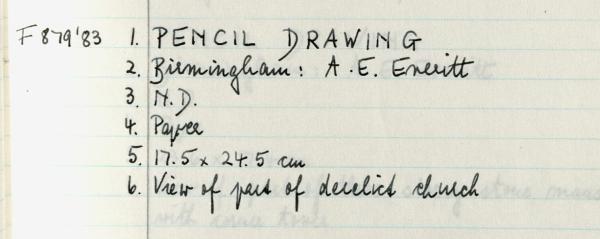 F 879'83 1. PENCIL DRAWING
2. Birmingham: A. E. Everitt
3. N.D.
4. Paper
5. 17.5 x 24.5 cm
6. View of part of derelict church